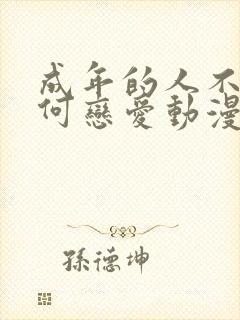 成年的人不
何戀愛動漫
孫德坤